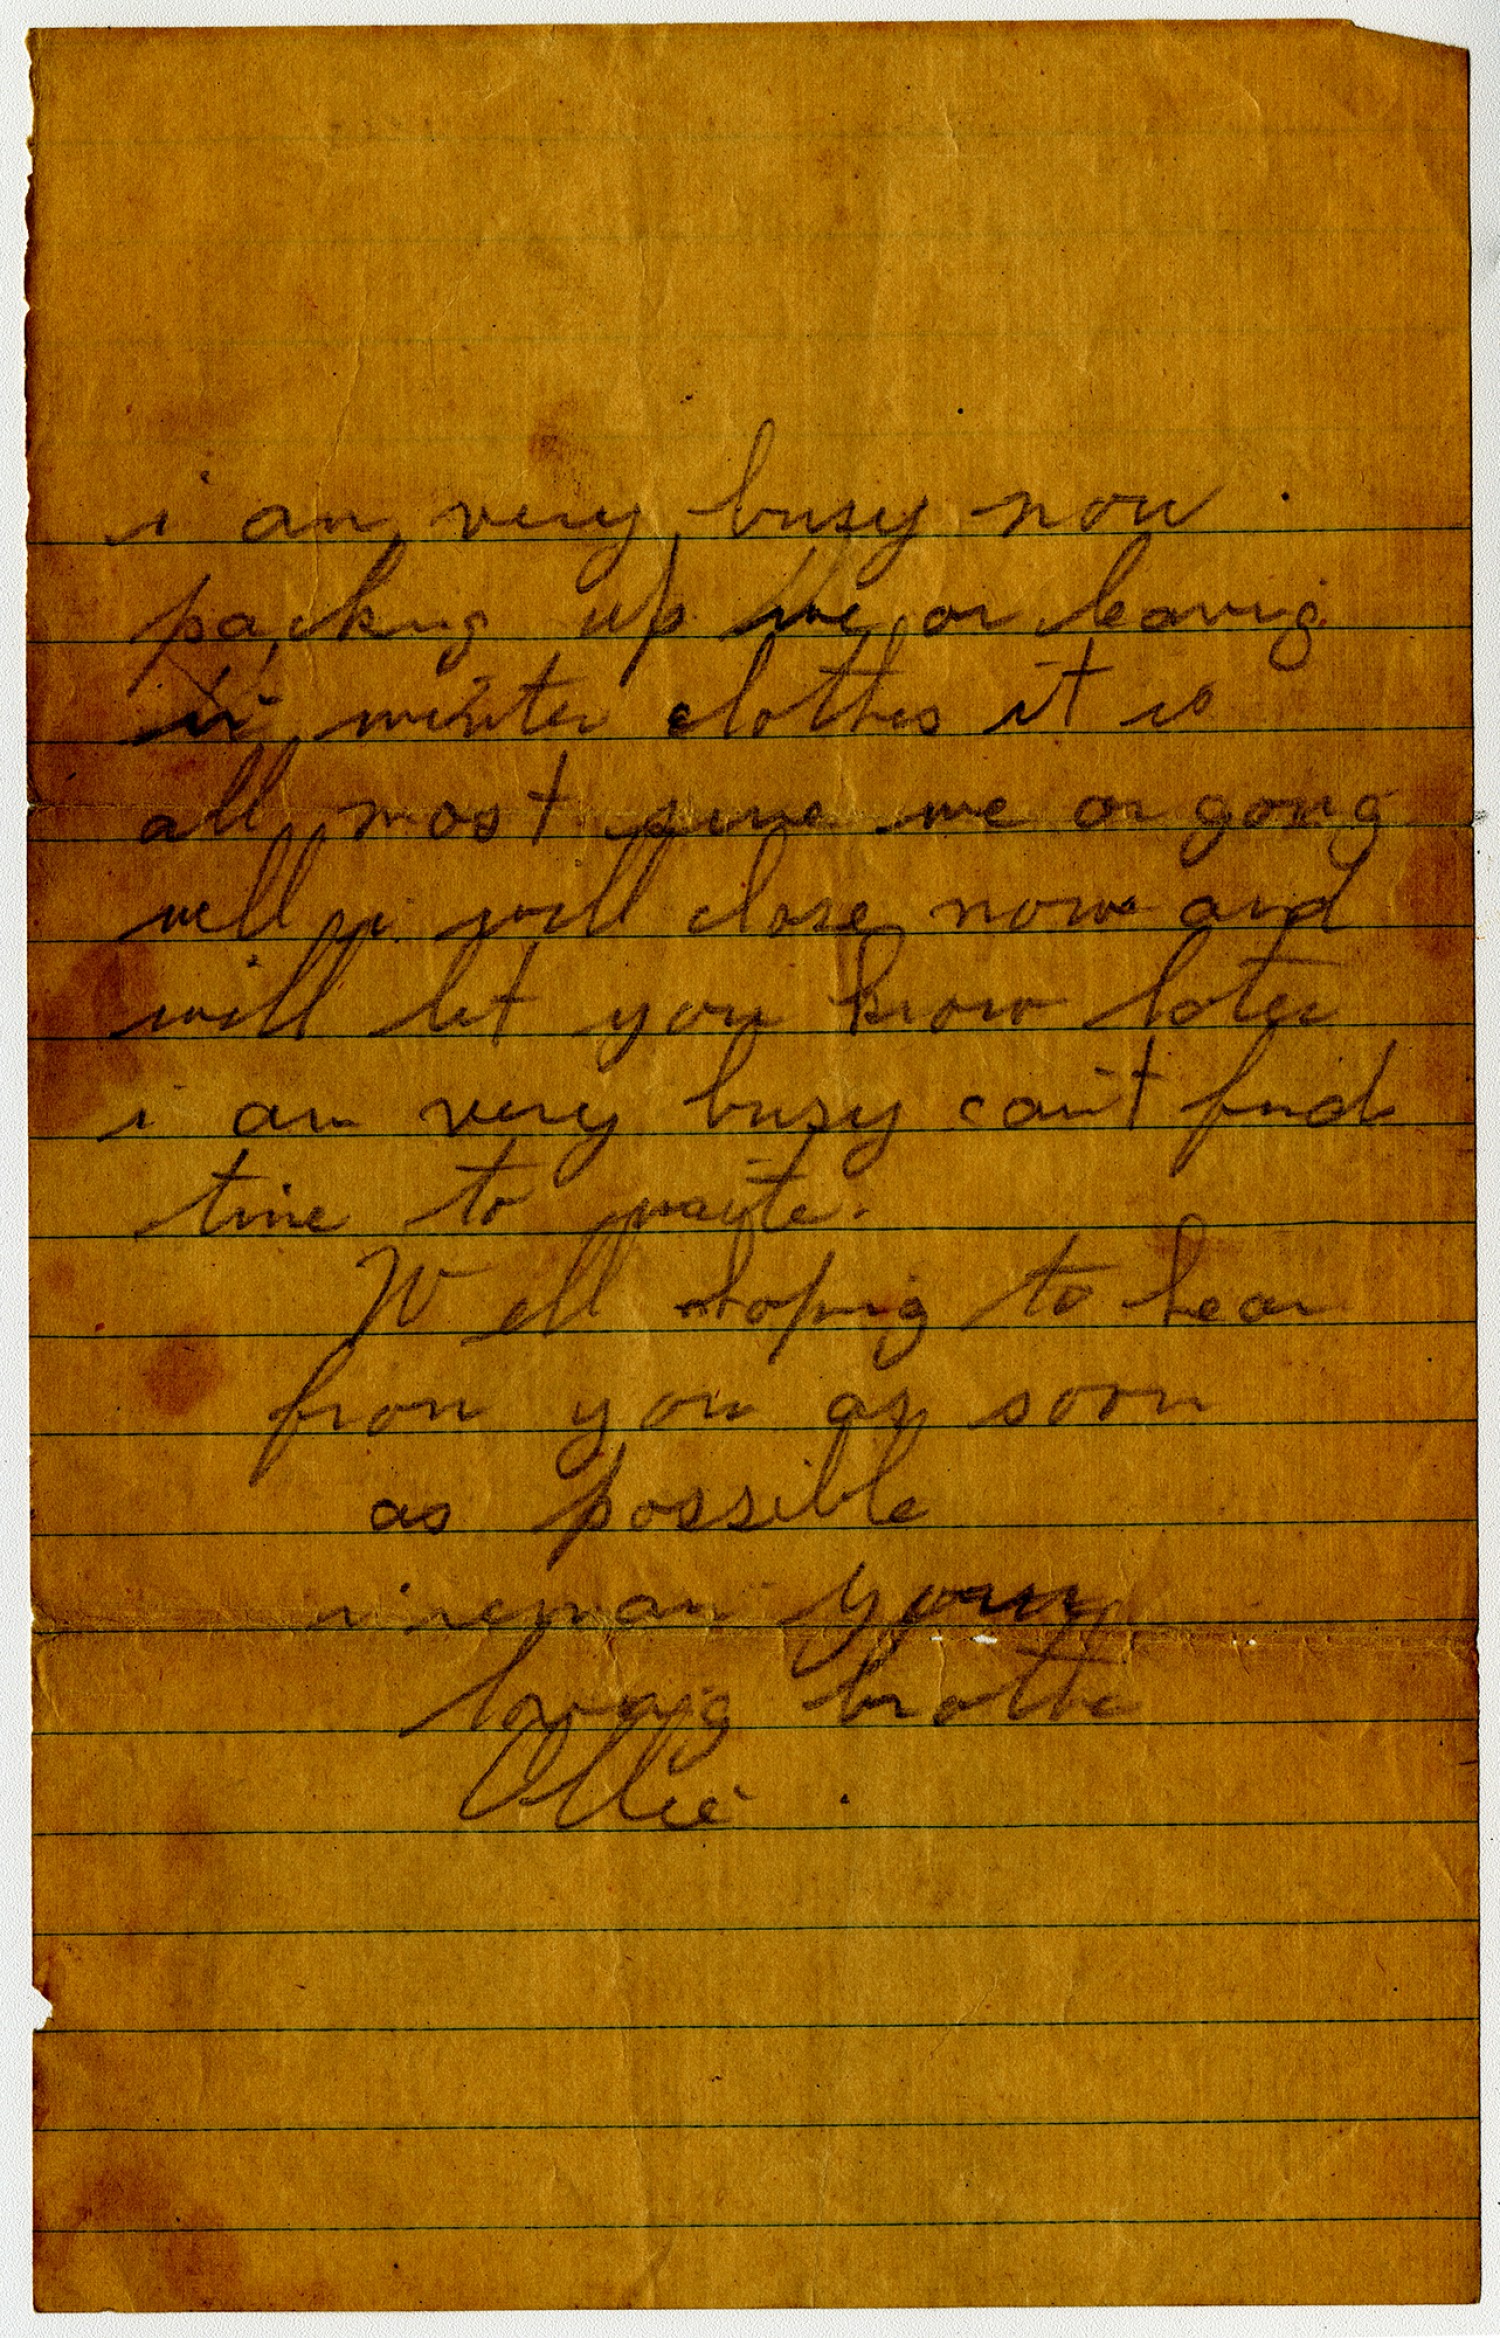 i am very busy now.
packing up we or leavig
in winter clothes it is
all most sure we or going
well i will close now and
will let you know later
i am very busy can't find
time to waite.
Well hoping to hear
from you as soon
as possible
ireman your
loving brothe
Ollie.